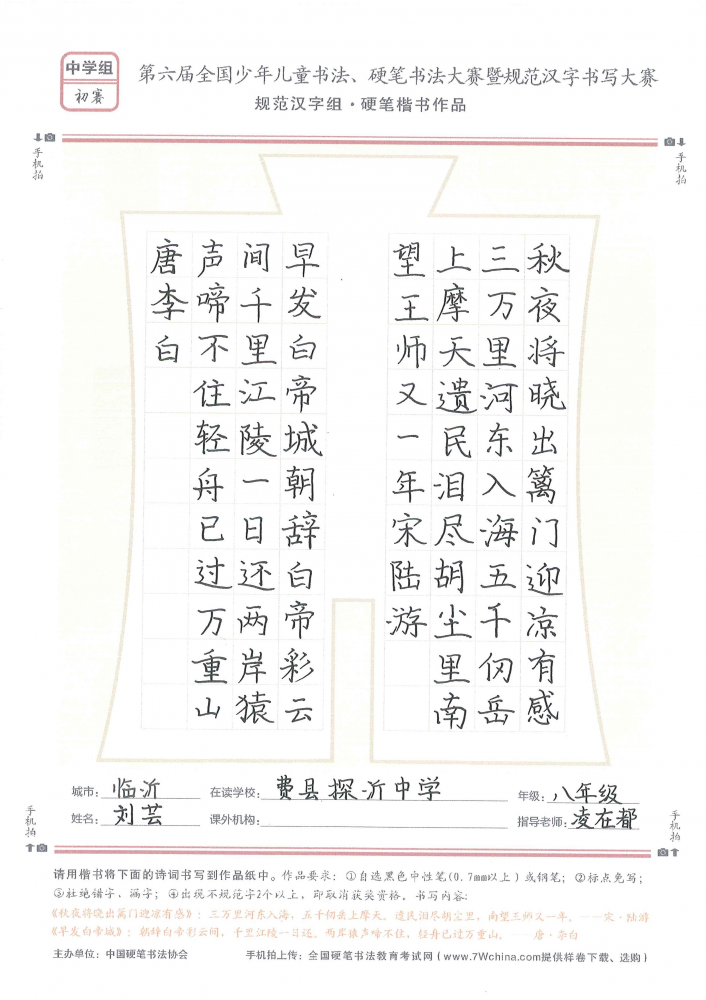 中学组
初赛
第六届全国少年儿童书法、硬笔书法大赛暨规范汉字书写大赛
规范汉字组·硬笔楷书作品
手机拍
手机拍
秋夜将晓出篱门迎凉有感
三万里河东入海五千仞岳
上摩天遗民泪尽胡尘里南
望王师又一年宋陆游
早发白帝城朝辞白帝彩云
间千里江陵一日还两岸猿
声啼不住轻舟已过万重山
唐李白
城市：临沂 在读学校：费县探沂中学 年级：八年级
姓名：刘芸 课外机构： 指导老师：凌在都
手机拍
手机拍
请用楷书将下面的诗词书写到作品纸中。作品要求：①自选黑色中性笔(0.7mm以上)或钢笔；②标点免写；
③杜绝错字、漏字；④出现不规范字2个以上，即取消获奖资格。书写内容：
《秋夜将晓出篱门迎凉有感》：三万里河东入海，五千仞岳上摩天。遗民泪尽胡尘里，南望王师又一年。——宋·陆游
《早发白帝城》：朝辞白帝彩云间，千里江陵一日还。两岸猿声啼不住，轻舟已过万重山。——唐·李白
主办单位：中国硬笔书法协会 手机拍上传：全国硬笔书法教育考试网(www.7Wchina.com提供样卷下载、选购)